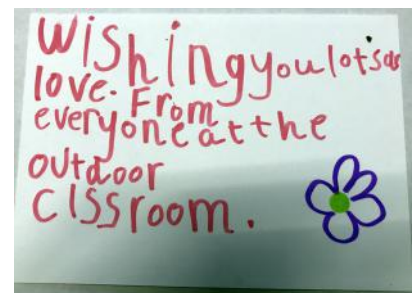 Wishing you lots of
love. From
everyone at the
outdoor
clssroom.